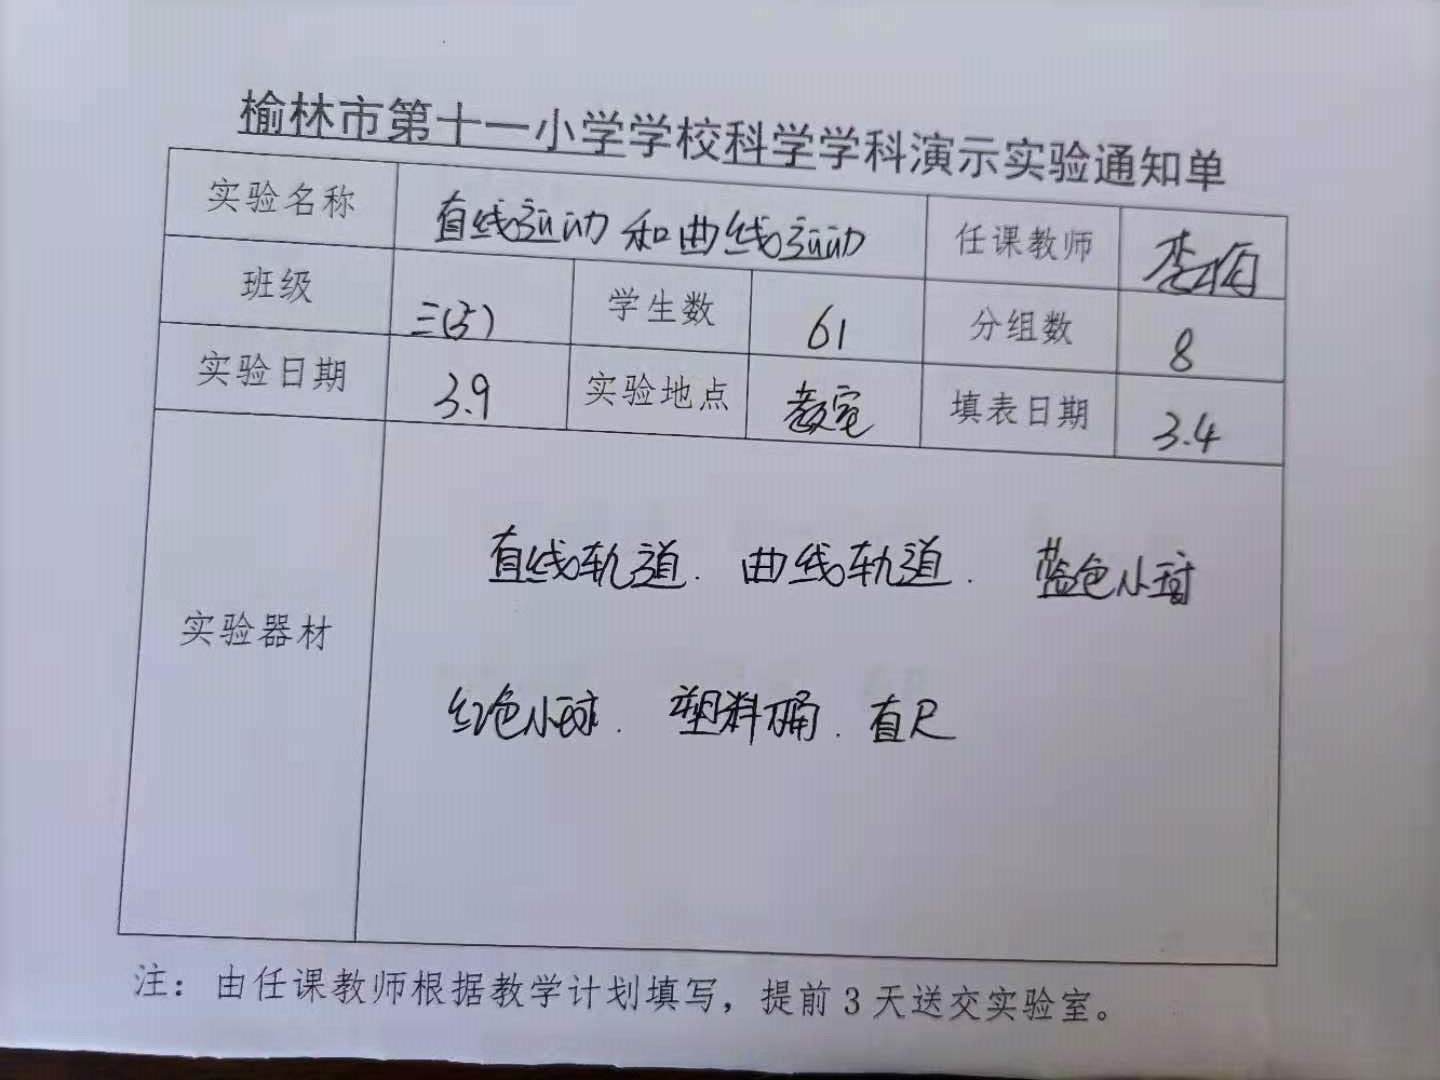 榆林市第十一小学学校科学学科演示实验通知单
实验名称 直线运动和曲线运动 任课教师
班级 三(5) 学生数 61 分组数 8
实验日期 3.9 实验地点 教室 填表日期 3.4
直线轨道. 曲线轨道. 蓝色小球
实验器材
红色小球. 塑料桶. 直尺
注：由任课教师根据教学计划填写，提前3天送交实验室。